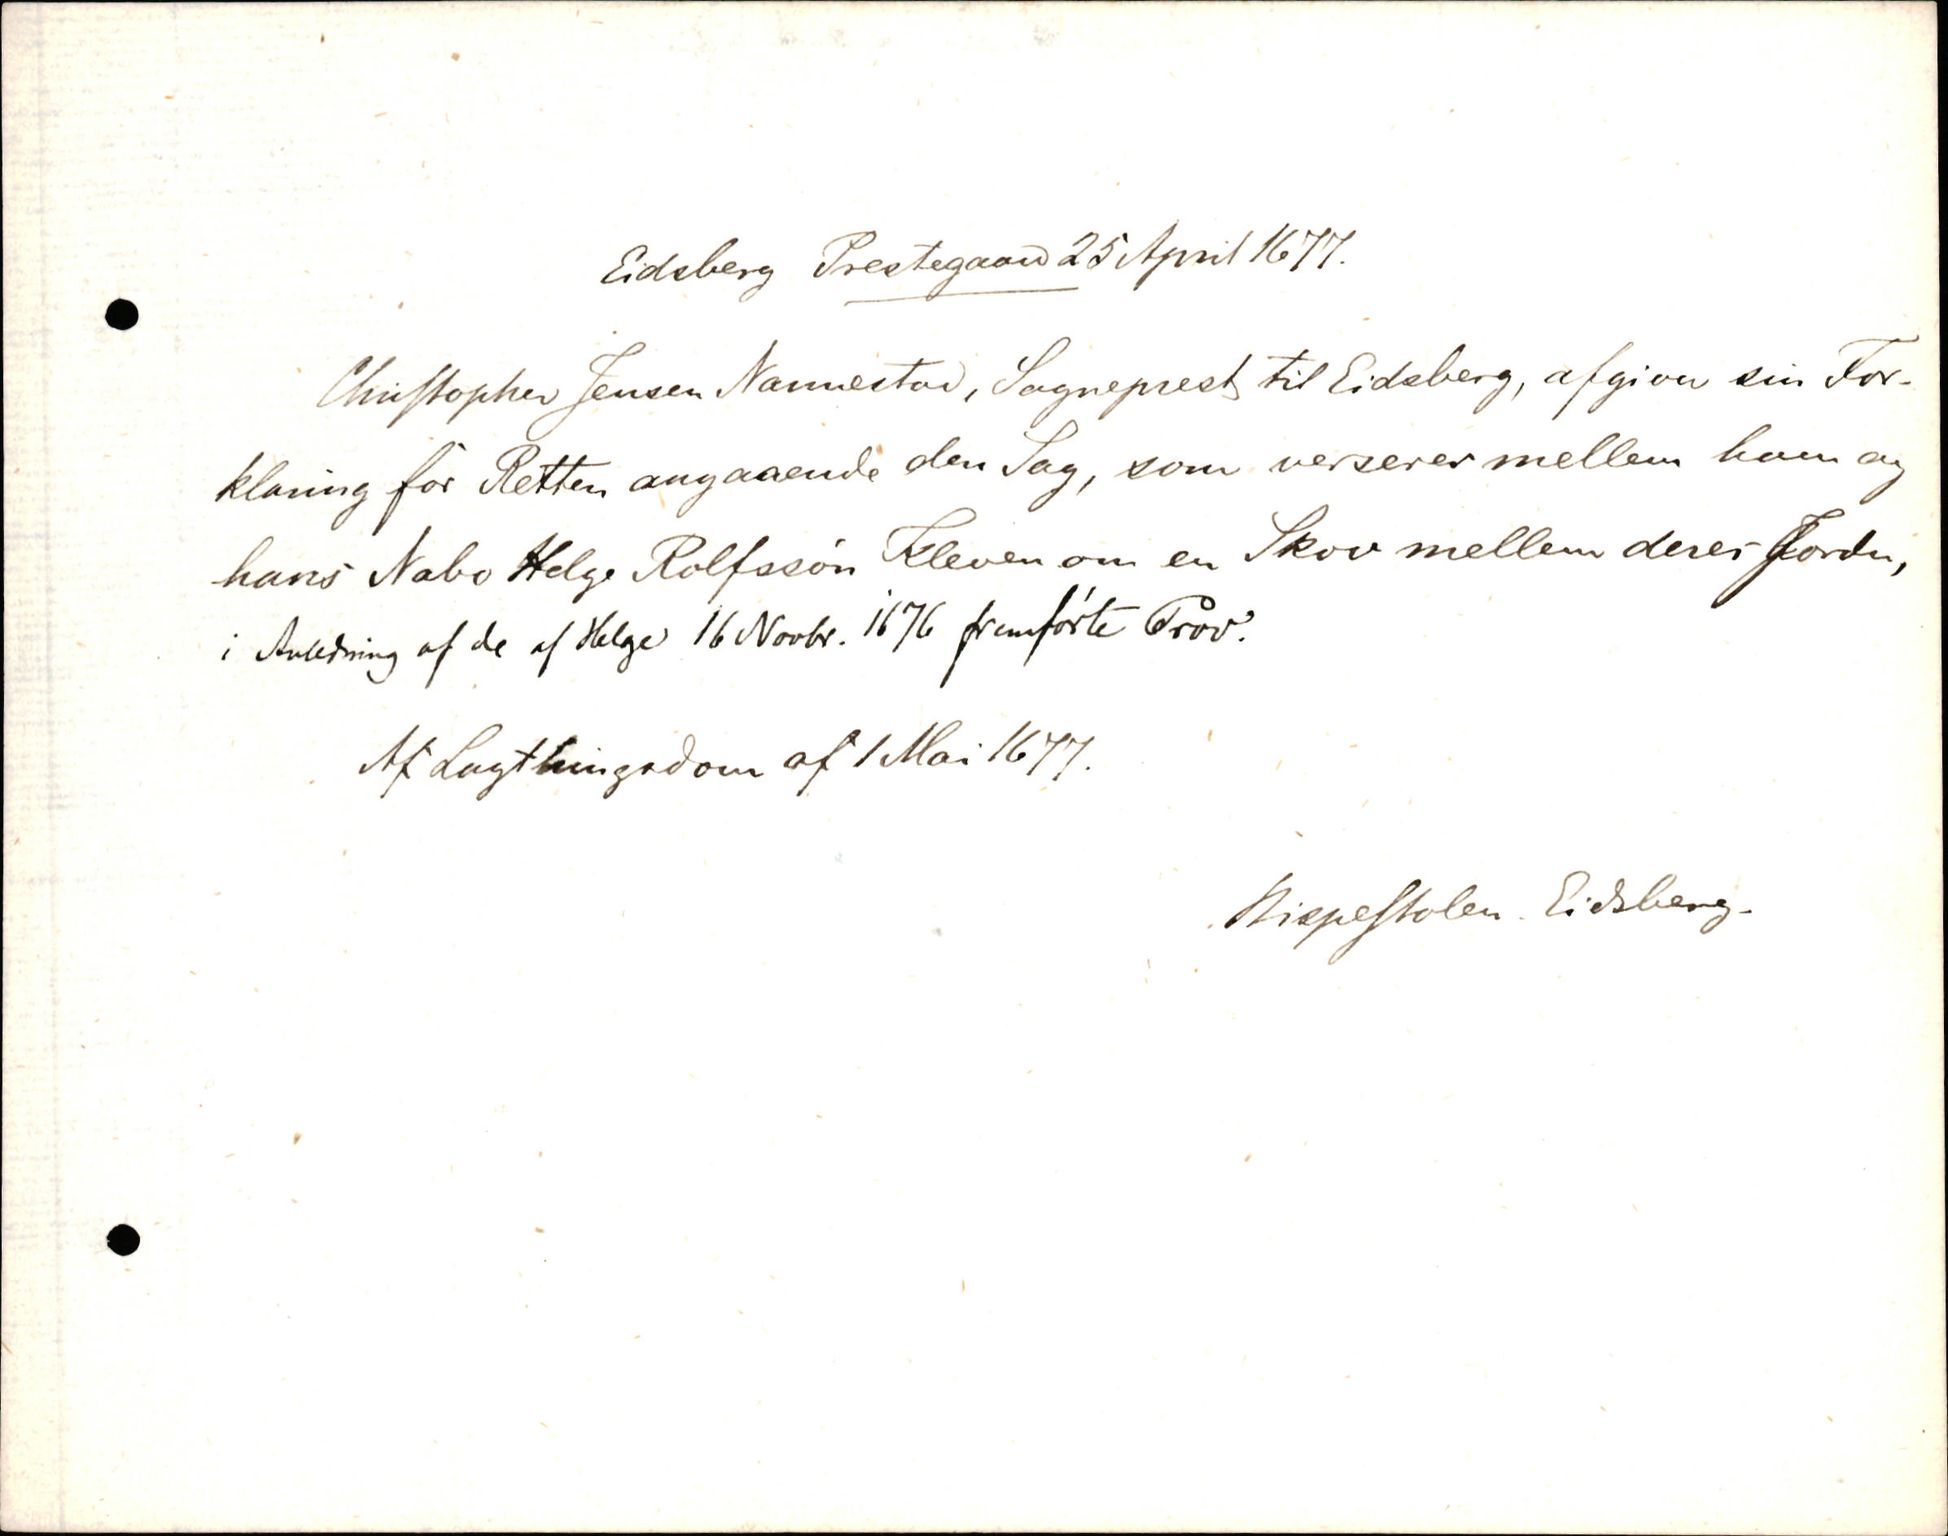 Eidsberg Prestegaard 25 April 1677.
Christopher Jensen Nannestad, Sogneprest til Eidsberg, afgiver sin For-
klaring for Retten angaaende den Sag, som verserer mellem ham og
hans Nabo Helge Rolfssön Kleven om en Skov mellem deres Jorder,
i Anledning af de af Helge 16 Novbr. 1676 fremförte Pröv.
Af Lagthingsdom af 1 Mai 1677.
Hispestolen. Eidsberg.